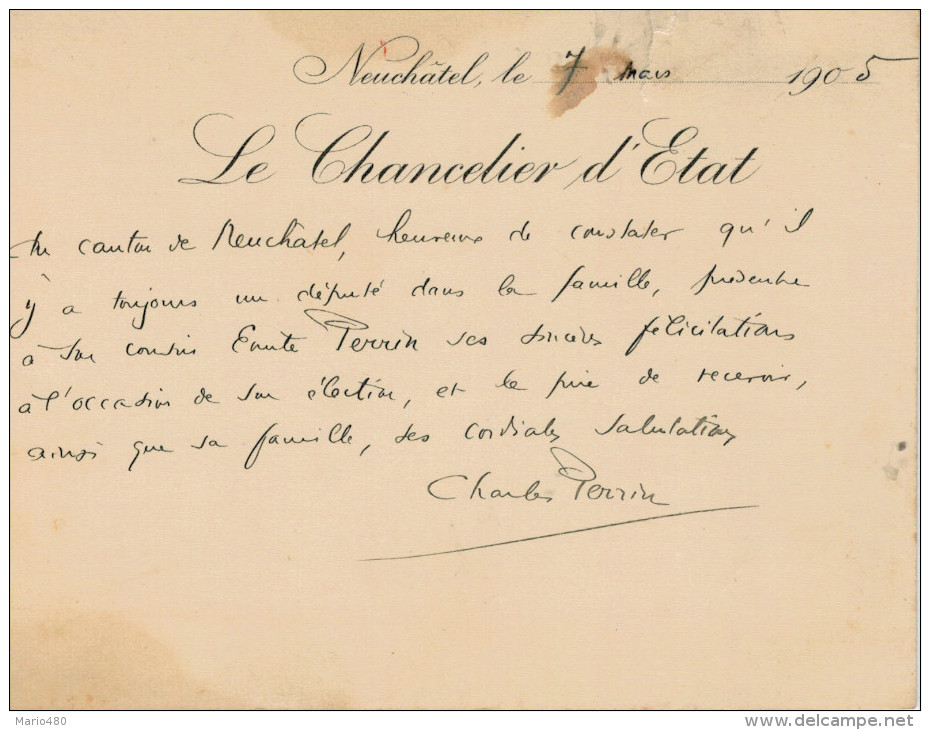 Neuchâtel, le 7 mars 1905
Le Chancelier d'Etat
du canton de Neuchâtel, heureux de constater qu'il
y a toujours un député dans la famille, présente
à son cousin Emile Perrin ses sincères félicitations
à l'occasion de son élection, et le prie de recevoir,
ainsi que sa famille, ses cordiales salutations
Charles Perrin
Mario480
www.delcampe.net